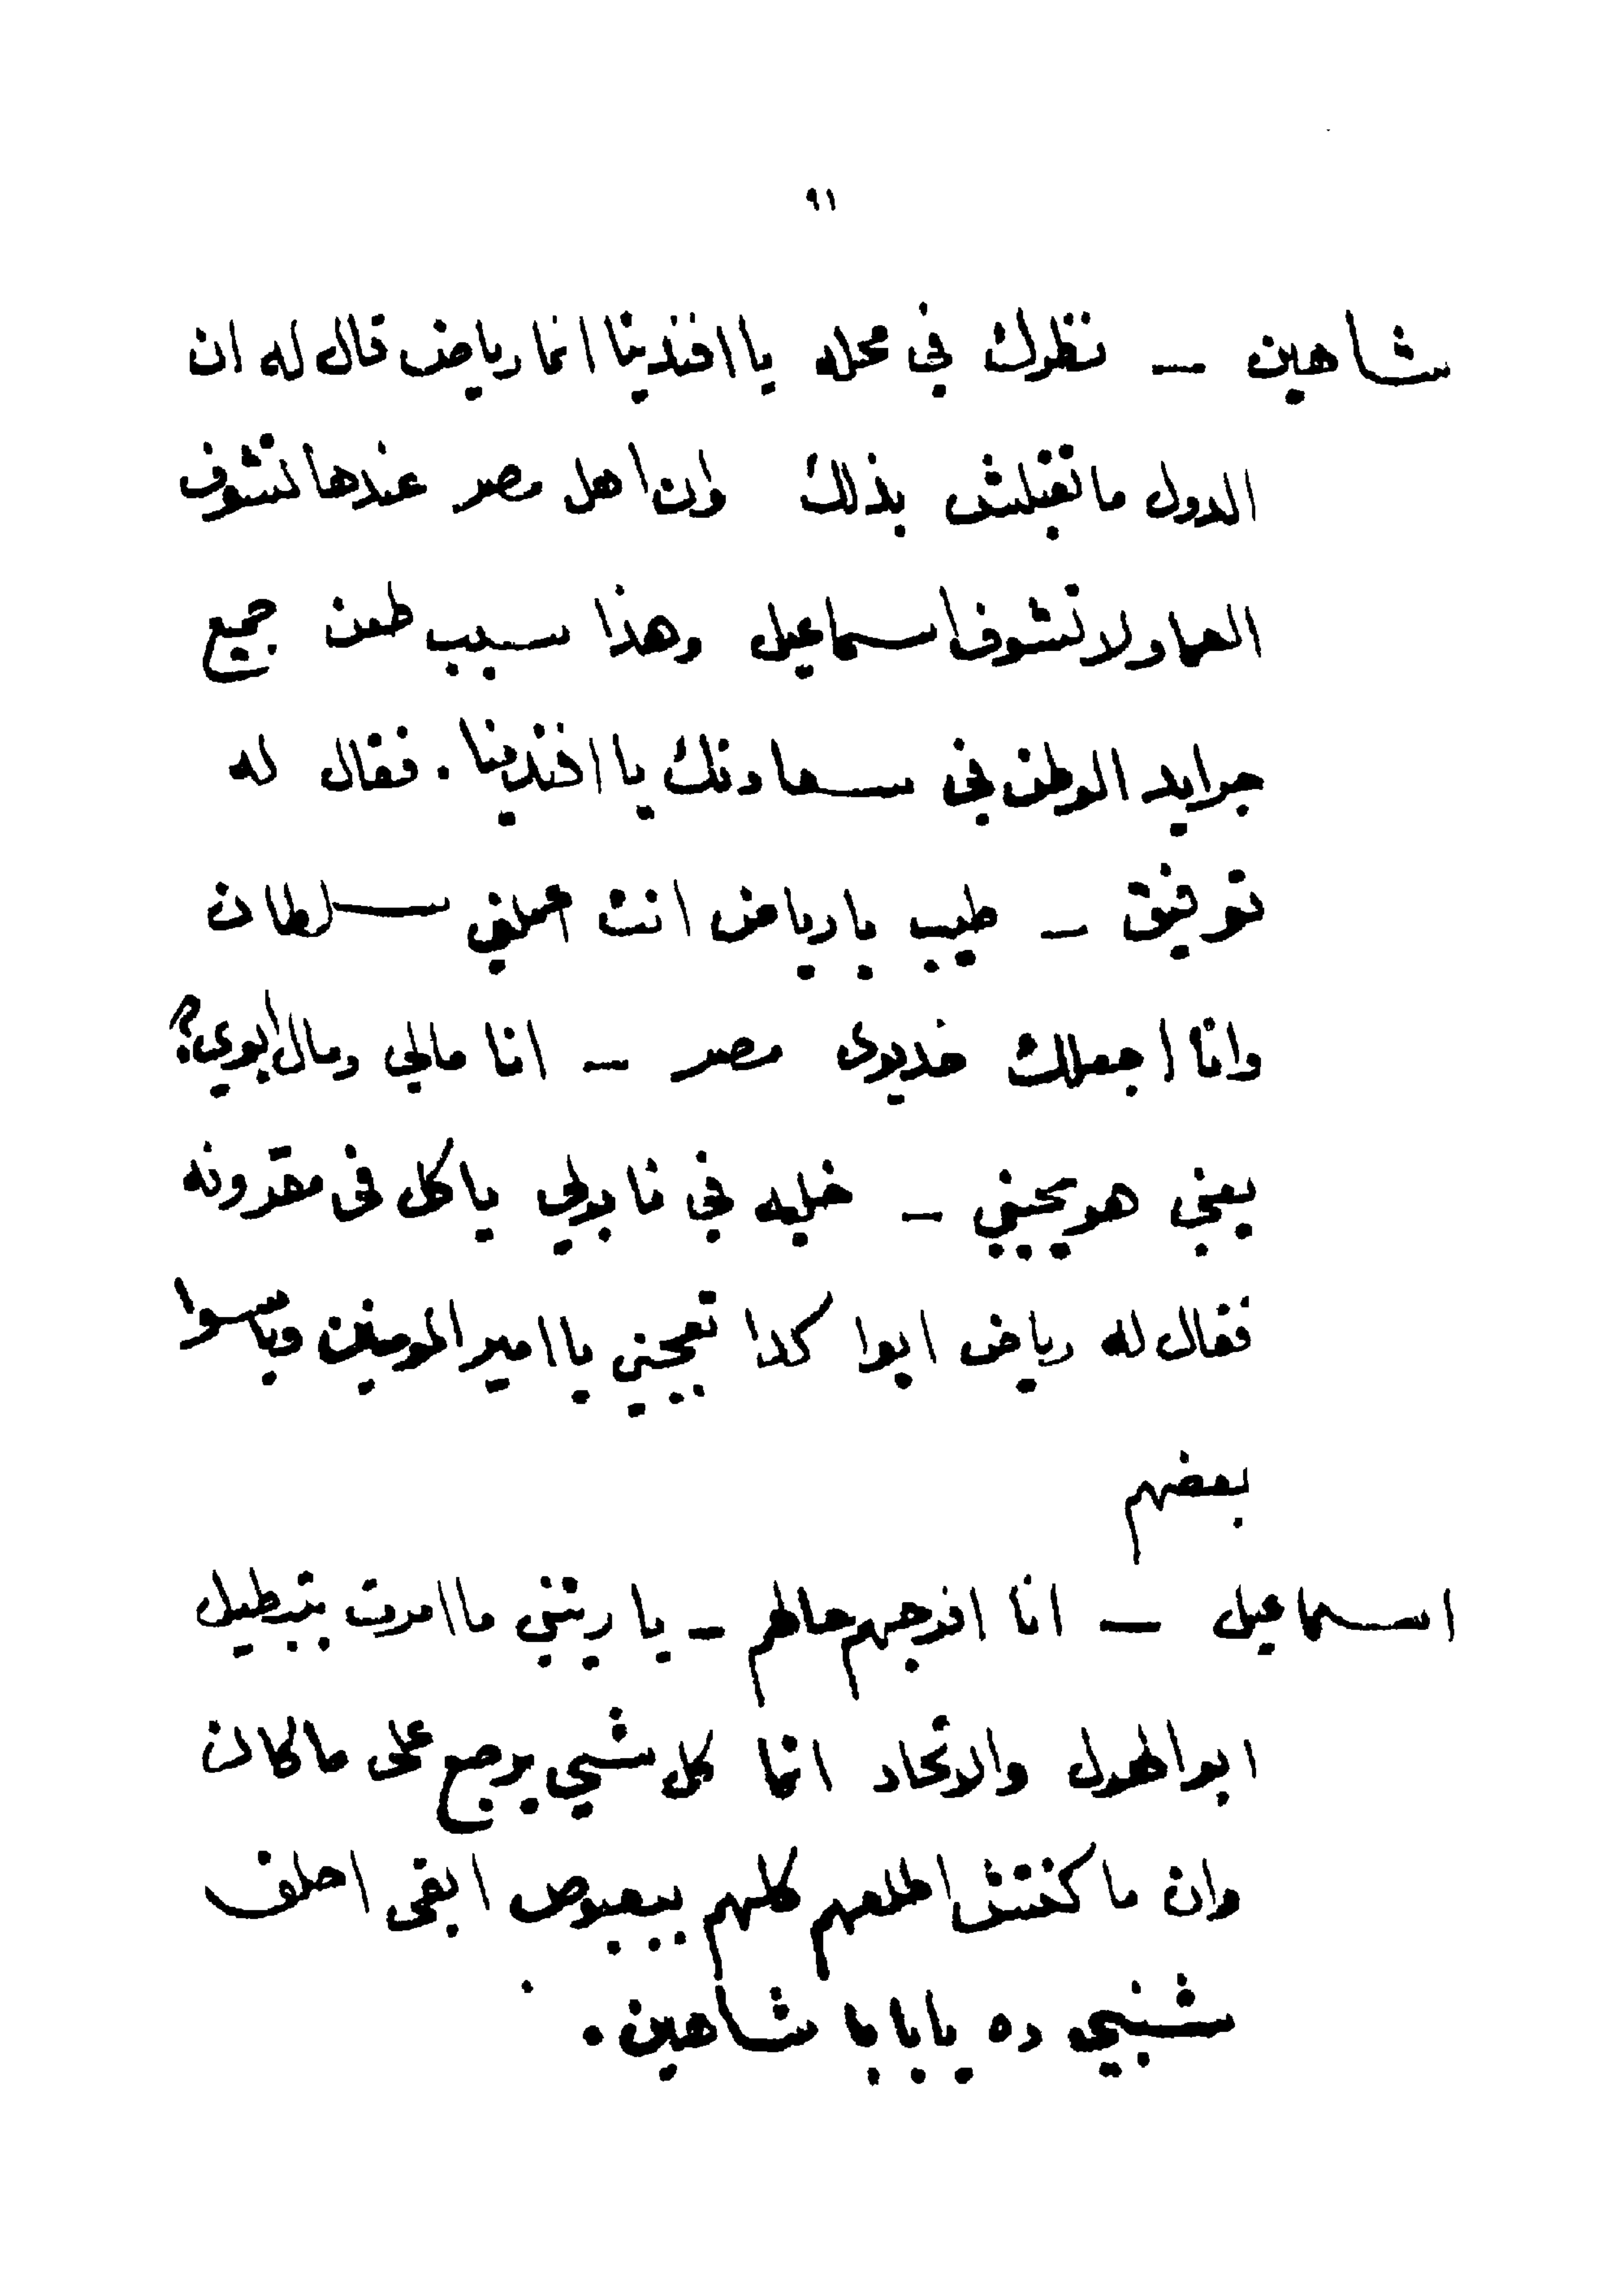 ٩١
شاهين — نظرك في محله يا افندينا انما رياض قال له ان
الدول ما تقبلش بذلك وان اهل مصر عندها تشوف
العما ولا تشوف اسماعيل وهذا سبب طعن جميع
جرايد الوطن في سعادتك يا افندينا . فقال له
توفيق — طيب يا رياض انت اعملني سلطان
وانا اجعلك خديوى مصر — انا مالي ومال ابوي؟
يعني هو يحيني — خليه في نابولي ياكل فى مقرونه
فقال له رياض ايوا كدا تعجبني يا امير المومنين وباسوا
بعضهم
اسماعيل — انا افرجهم حالهم — يا ريتني ما امرت بتبطيل
ابو الهول والاتحاد انما كل شي يرجع على ما كان
وان ما كنتش اطلعهم كلهم بيعبوص ابقى احلف
شنبي ده يا بابا شاهين .